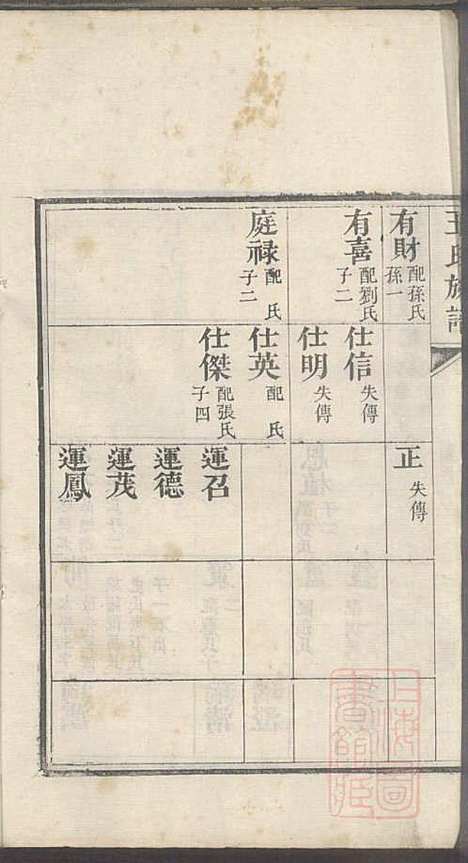 王氏族譜
有財 配孫氏 孫一
有喜 配劉氏 子二
庭禄 配 氏 子二
仕信 失傳
仕明 失傳
仕英 配 氏
仕傑 配張氏 子四
正 失傳
運召
運德
運茂
運鳳